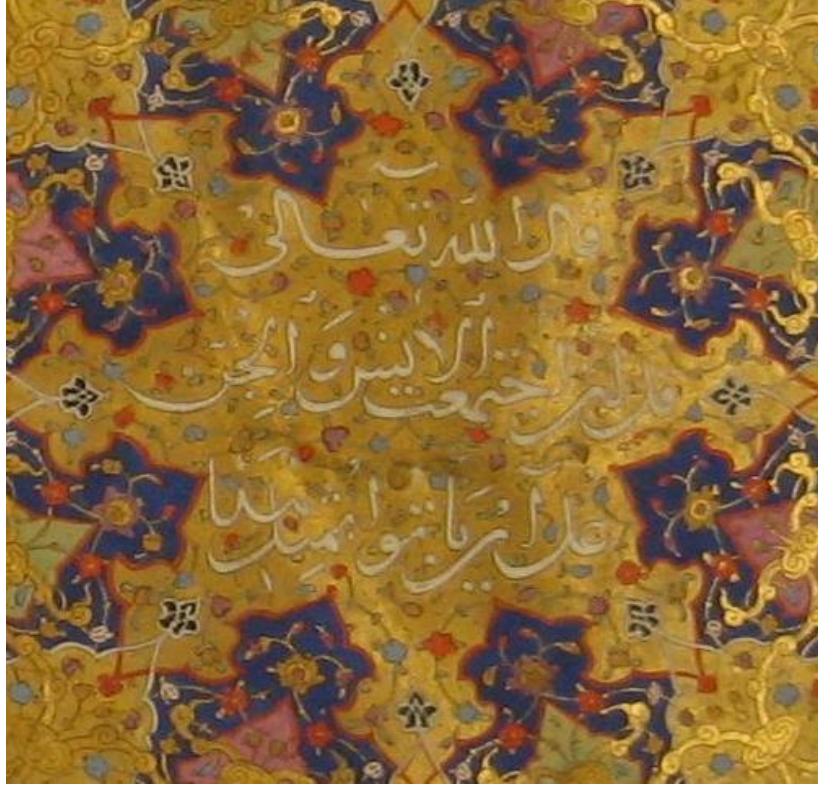 قال الله تعالى
قل لئن اجتمعت الانس و الجن
على ان ياتوا بمثل هذا